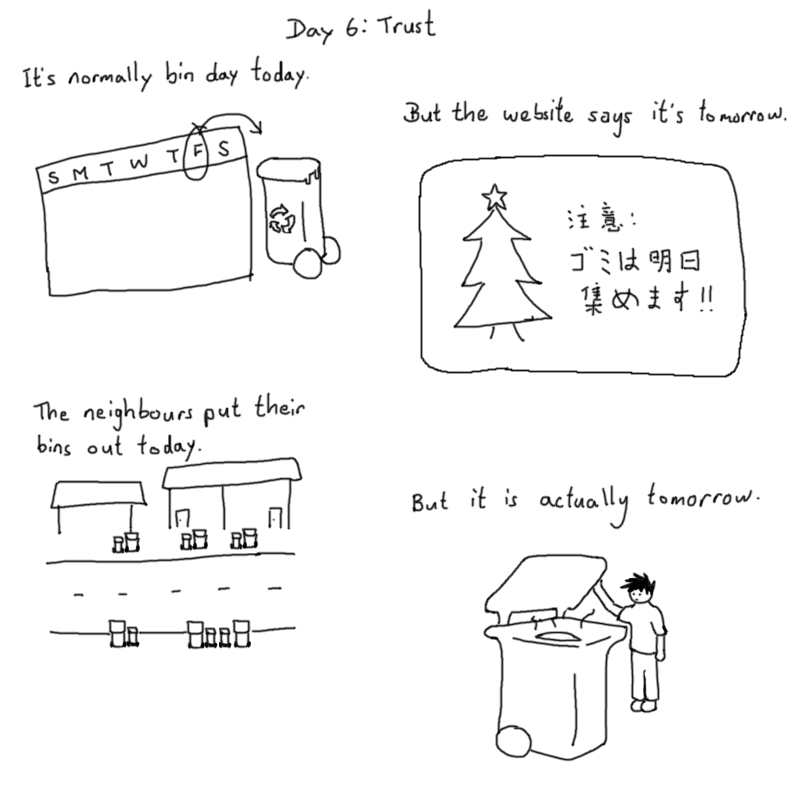 Day 6: Trust
It's normally bin day today.
S M T W T F S
But the website says it's tomorrow.
注意:
ゴミは明日
集めます!!
The neighbours put their
bins out today.
But it is actually tomorrow.